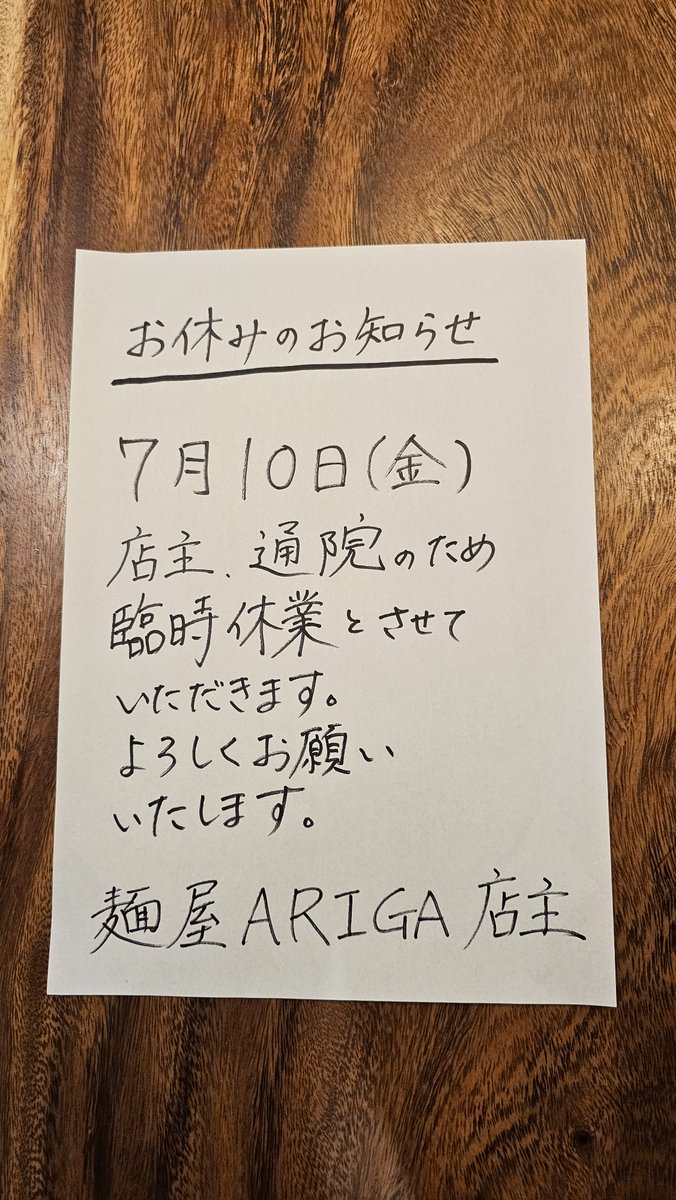 お休みのお知らせ
7月10日(金)
店主、通院のため
臨時休業とさせて
いただきます。
よろしくお願い
いたします。
麺屋ARIGA店主